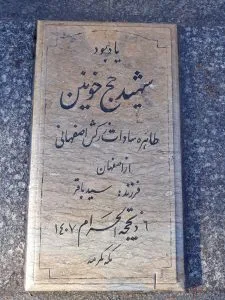 یادبود
شهید حج خونین
طاهره سادات زرکش اصفهانی
از اصفهان
فرزند: سید باقر
۶ ذیحجه الحرام ۱۴۰۷
مکه مکرمه